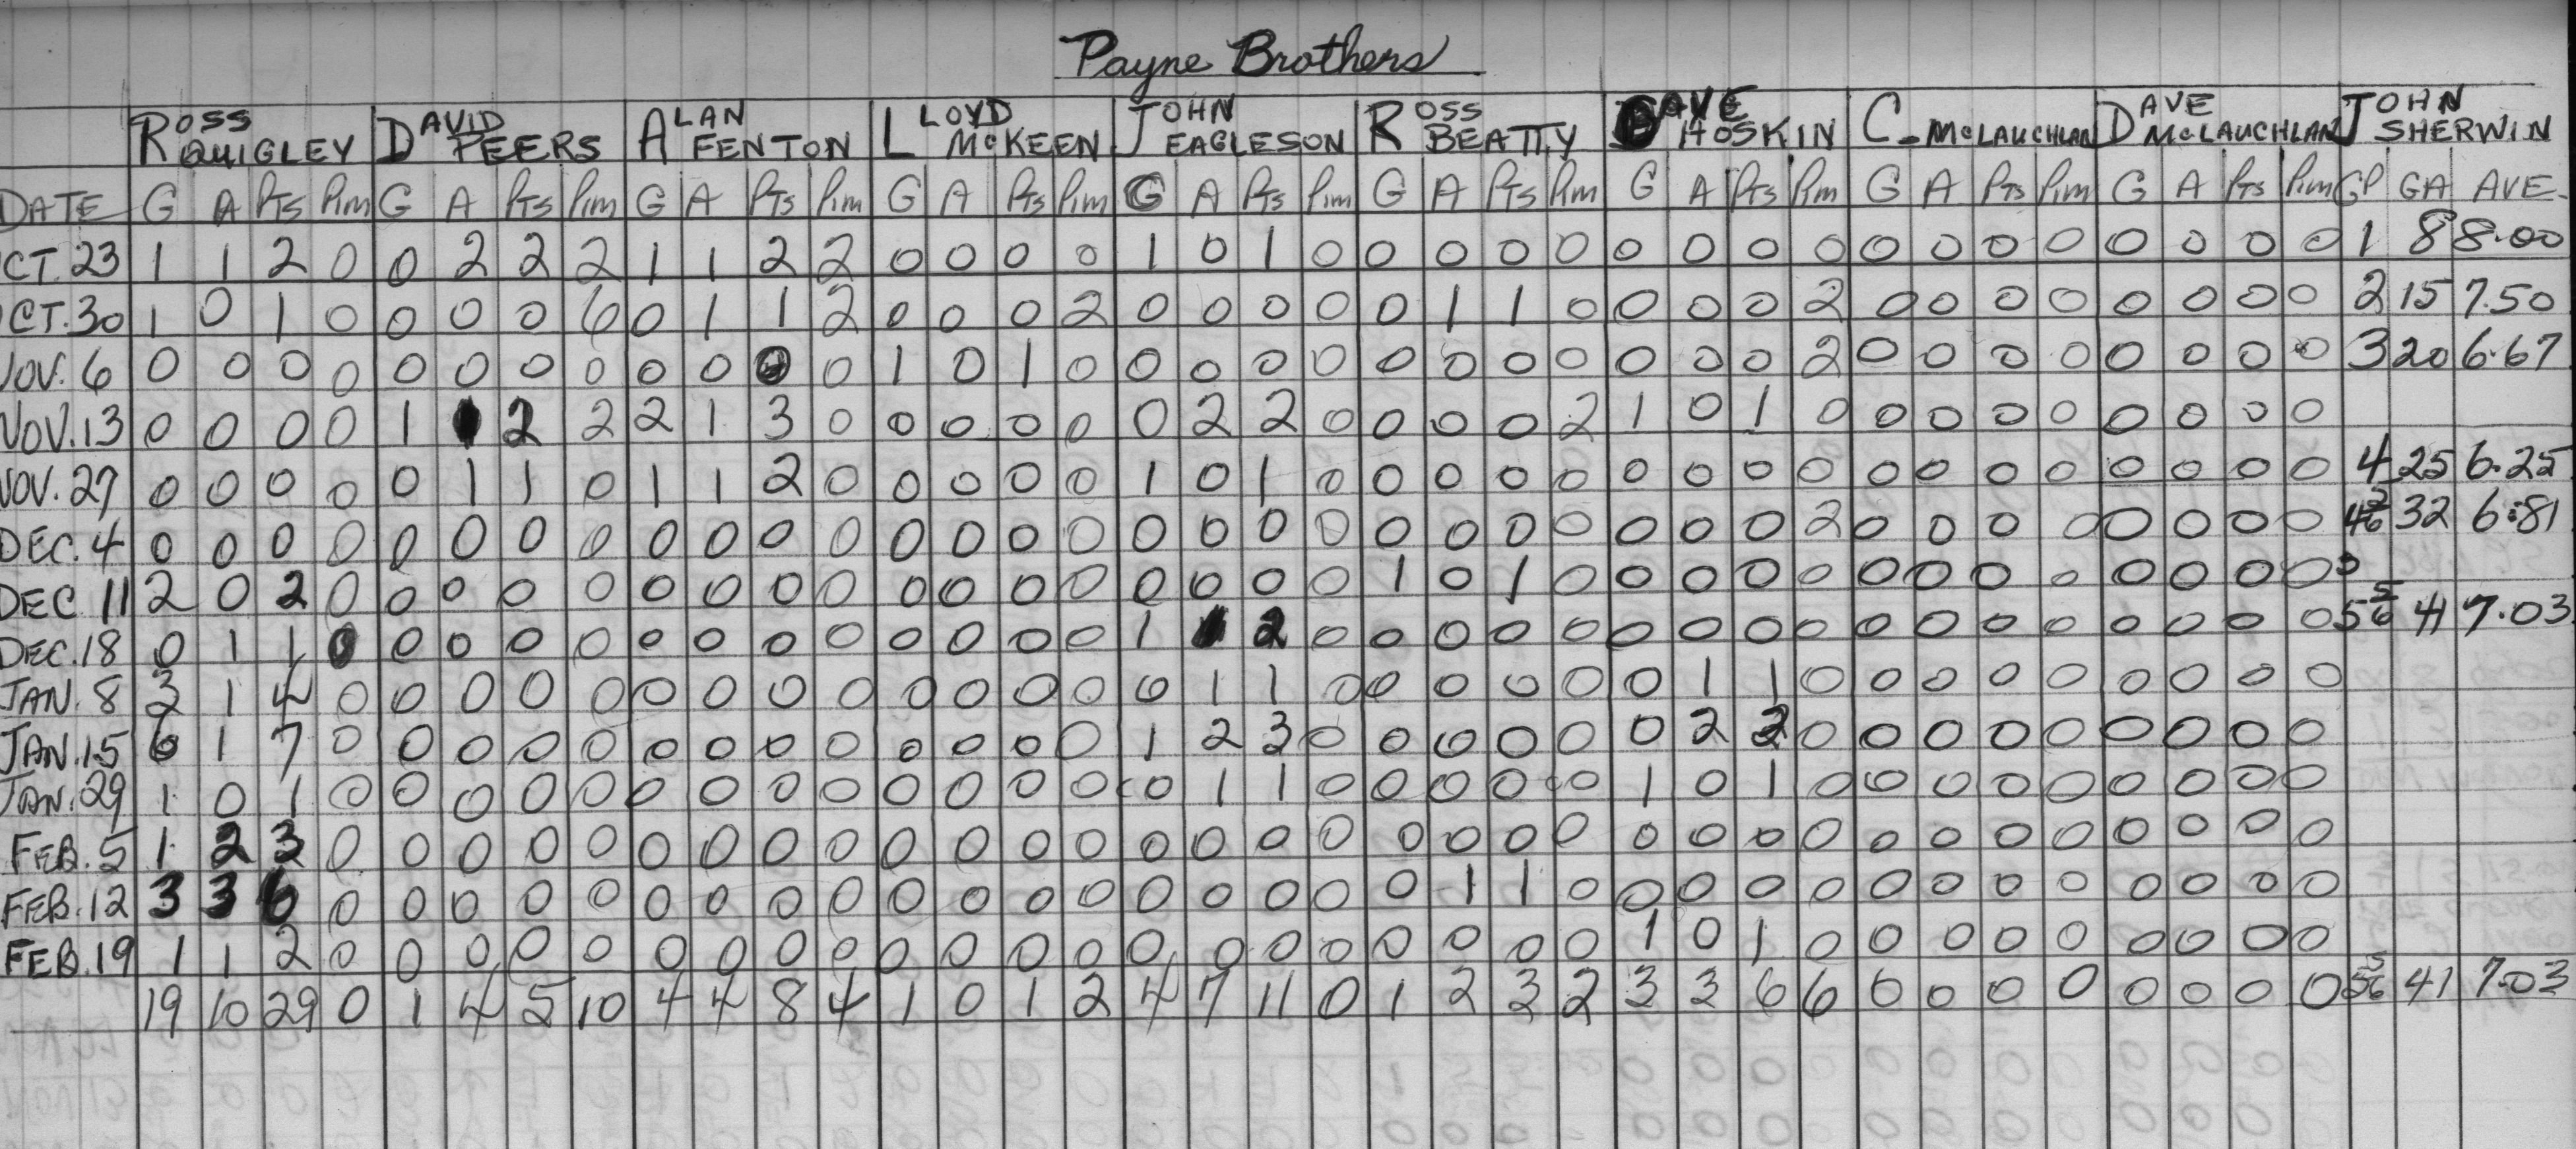 Payne Brothers
ROSS QUIGLEY DAVID PEERS ALAN FENTON LLOYD McKEEN JOHN EAGLESON ROSS BEATTY DAVE HOSKIN C. McLAUCHLAN DAVE McLAUCHLAN JOHN SHERWIN
DATE G A Pts Pim G A Pts Pim G A Pts Pim G A Pts Pim G A Pts Pim G A Pts Pim G A Pts Pim G A Pts Pim G A Pts Pim GP GA AVE.
CT. 23 1 1 2 0 0 2 2 2 1 1 2 2 0 0 0 0 1 0 1 0 0 0 0 0 0 0 0 0 0 0 0 0 0 0 0 0 1 8 8.00
CT. 30 1 0 1 0 0 0 0 6 0 1 1 2 0 0 0 2 0 0 0 0 0 1 1 0 0 0 0 2 0 0 0 0 0 0 0 0 2 15 7.50
NOV. 6 0 0 0 0 0 0 0 0 0 0 0 0 1 0 1 0 0 0 0 0 0 0 0 0 0 0 0 2 0 0 0 0 0 0 0 0 3 20 6.67
NOV. 13 0 0 0 0 1 1 2 2 2 1 3 0 0 0 0 0 0 2 2 0 0 0 0 2 1 0 1 0 0 0 0 0 0 0 0 0
NOV. 27 0 0 0 0 0 1 1 0 1 1 2 0 0 0 0 0 1 0 1 0 0 0 0 0 0 0 0 0 0 0 0 0 0 0 0 0 4 25 6.25
DEC. 4 0 0 0 0 0 0 0 0 0 0 0 0 0 0 0 0 0 0 0 0 0 0 0 0 0 0 0 2 0 0 0 0 0 0 0 0 32 6.81
DEC 11 2 0 2 0 0 0 0 0 0 0 0 0 0 0 0 0 0 0 0 0 1 0 1 0 0 0 0 0 0 0 0 0 0 0 0 0
DEC. 18 0 1 1 0 0 0 0 0 0 0 0 0 0 0 0 0 1 1 2 0 0 0 0 0 0 0 0 0 0 0 0 0 0 0 0 0 5 5/6 41 7.03
JAN. 8 3 1 4 0 0 0 0 0 0 0 0 0 0 0 0 0 0 1 1 0 0 0 0 0 0 1 1 0 0 0 0 0 0 0 0 0
JAN. 15 6 1 7 0 0 0 0 0 0 0 0 0 0 0 0 0 1 2 3 0 0 0 0 0 0 2 2 0 0 0 0 0 0 0 0 0
JAN. 29 1 0 1 0 0 0 0 0 0 0 0 0 0 0 0 0 0 1 1 0 0 0 0 0 1 0 1 0 0 0 0 0 0 0 0 0
FEB. 5 1 2 3 0 0 0 0 0 0 0 0 0 0 0 0 0 0 0 0 0 0 0 0 0 0 0 0 0 0 0 0 0 0 0 0 0
FEB. 12 3 3 6 0 0 0 0 0 0 0 0 0 0 0 0 0 0 0 0 0 0 1 1 0 0 0 0 0 0 0 0 0 0 0 0 0
FEB. 19 1 1 2 0 0 0 0 0 0 0 0 0 0 0 0 0 0 0 0 0 0 0 0 0 1 0 1 0 0 0 0 0 0 0 0 0
19 10 29 0 1 4 5 10 4 4 8 4 1 0 1 2 4 7 11 0 1 2 3 2 3 3 6 6 0 0 0 0 0 0 0 0 5 5/6 41 7.03